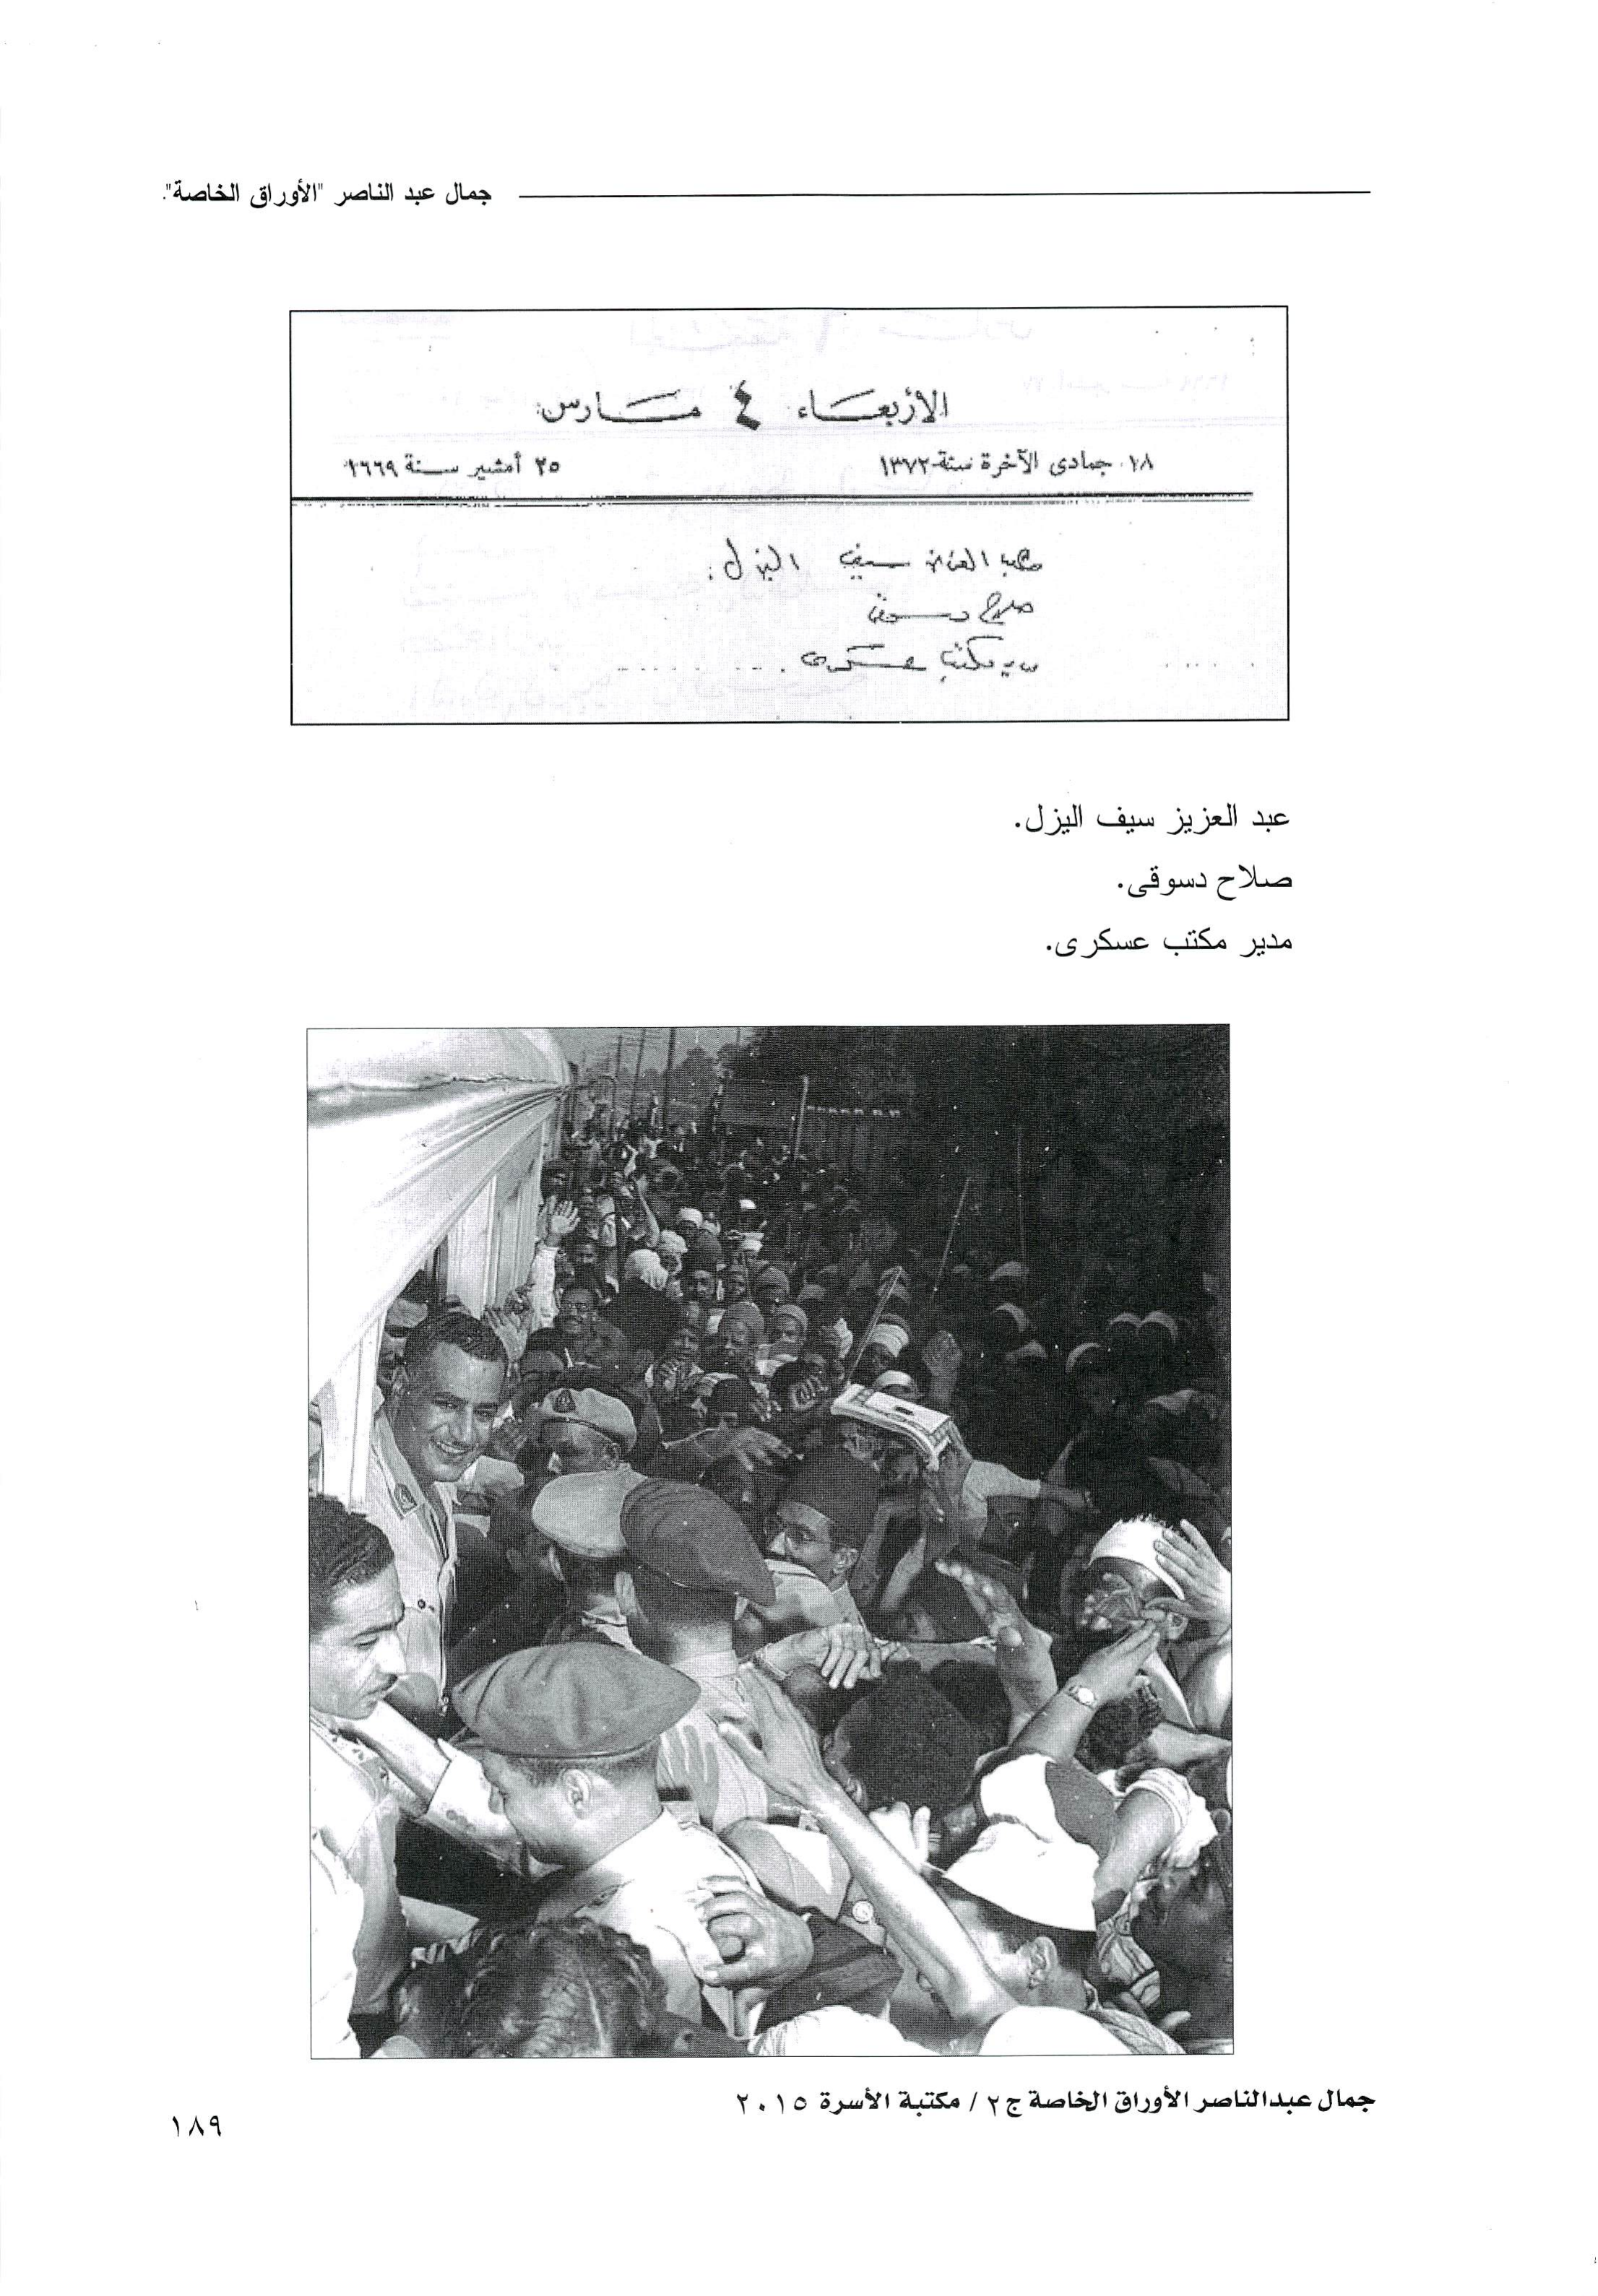 جمال عبد الناصر "الأوراق الخاصة".
الأربعاء ٤ مارس
١٨ جمادى الآخرة سنة ١٣٧٢
٢٥ أمشير سنة ١٦٦٩
سيف اليزل.
صلاح دسوقى
مدير مكتب عسكرى
عبد العزيز سيف اليزل.
صلاح دسوقى.
مدير مكتب عسكرى.
جمال عبدالناصر الأوراق الخاصة ج٢ / مكتبة الأسرة ٢٠١٥
١٨٩